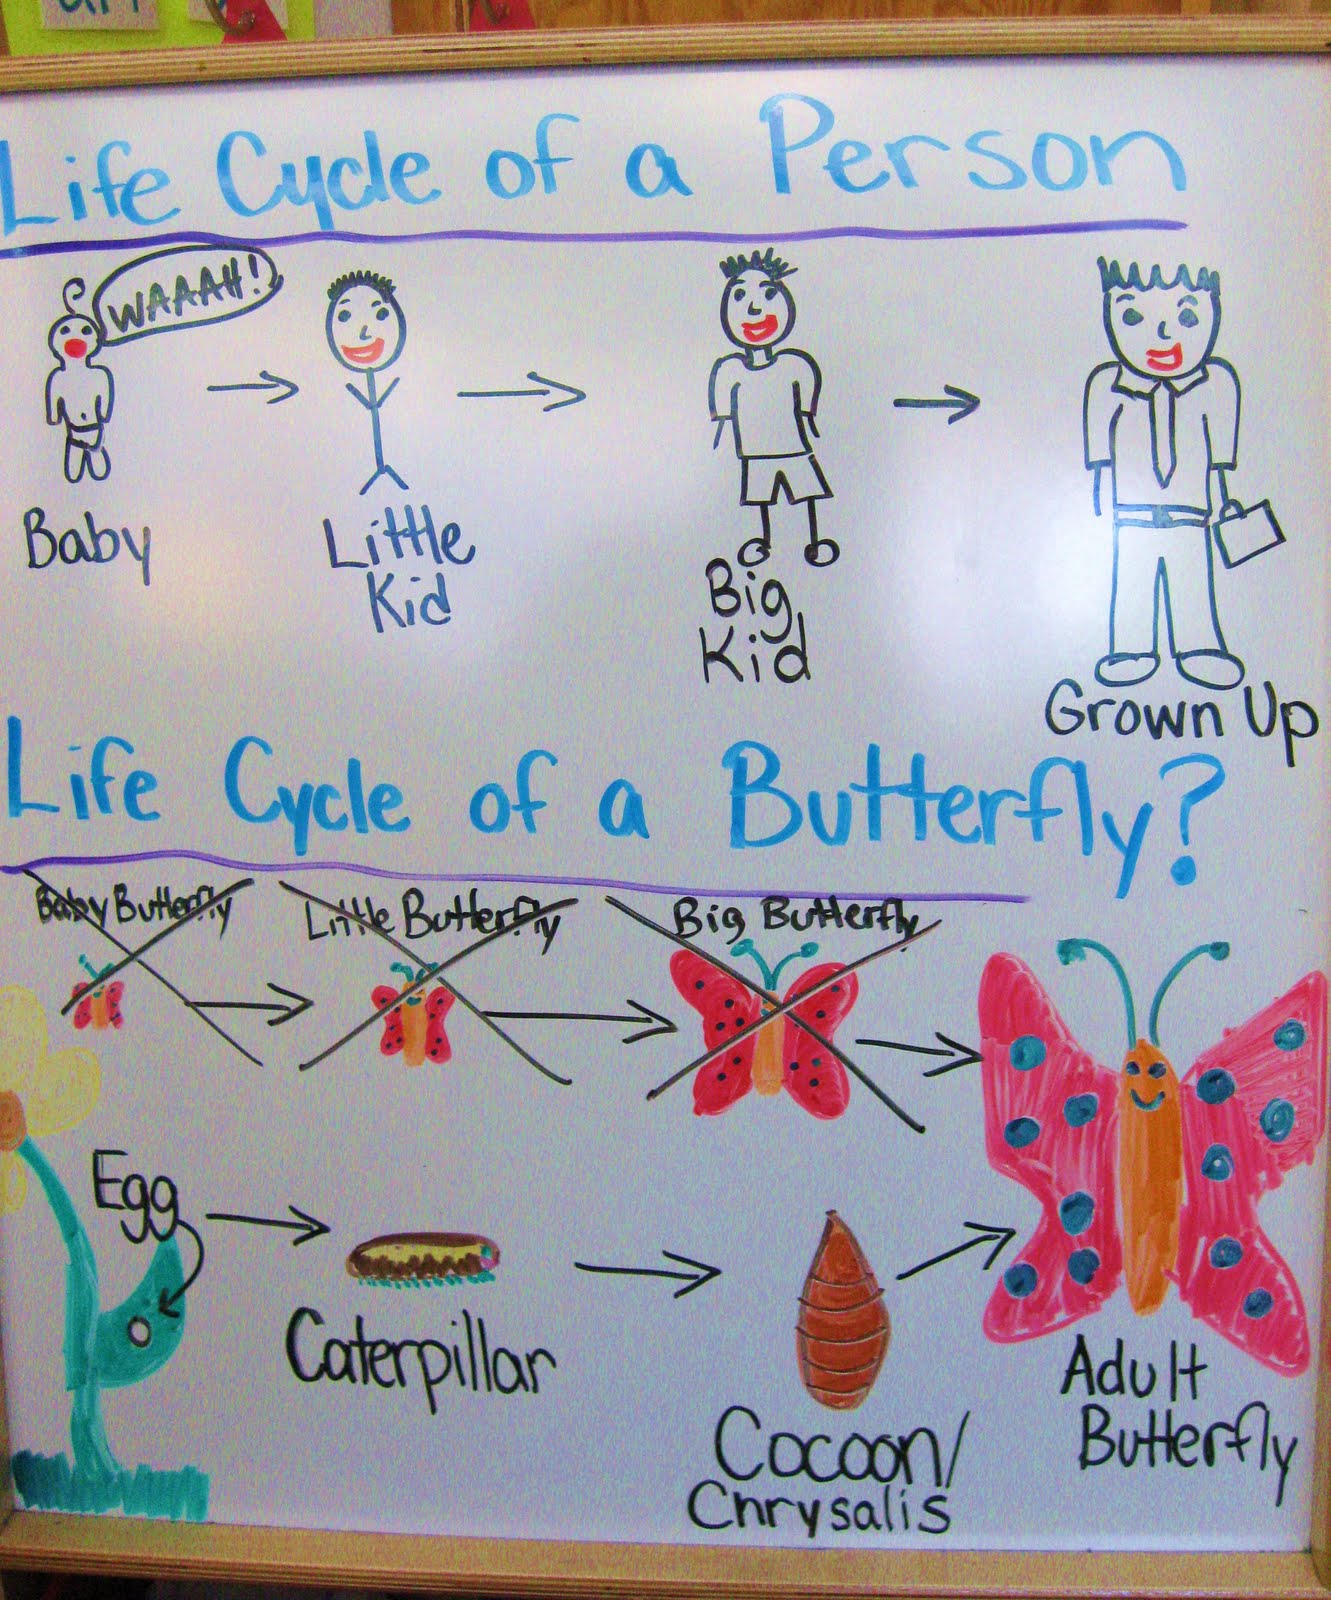 Life Cycle of a Person
WAAAH!
Baby
Little
Kid
Big
Kid
Grown Up
Life Cycle of a Butterfly?
Baby Butterfly
Little Butterfly
Big Butterfly
Egg
Caterpillar
Cocoon/
Chrysalis
Adult
Butterfly